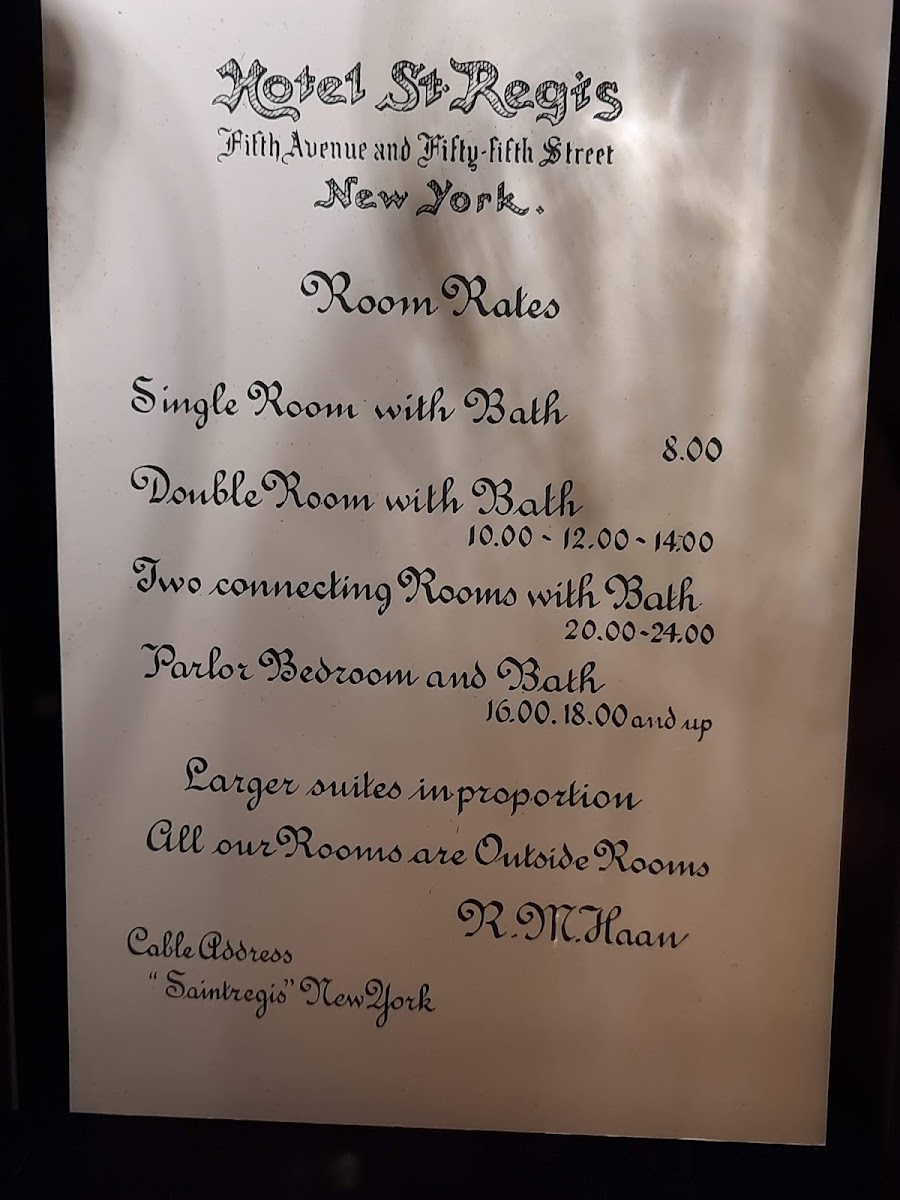 Hotel St. Regis
Fifth Avenue and Fifty-fifth Street
New York.
Room Rates
Single Room with Bath
8.00
Double Room with Bath
10.00 - 12.00 - 14.00
Two connecting Rooms with Bath
20.00-24.00
Parlor Bedroom and Bath
16.00. 18.00 and up
Larger suites in proportion
All our Rooms are Outside Rooms
R. M. Haan
Cable Address
"Saintregis" New York